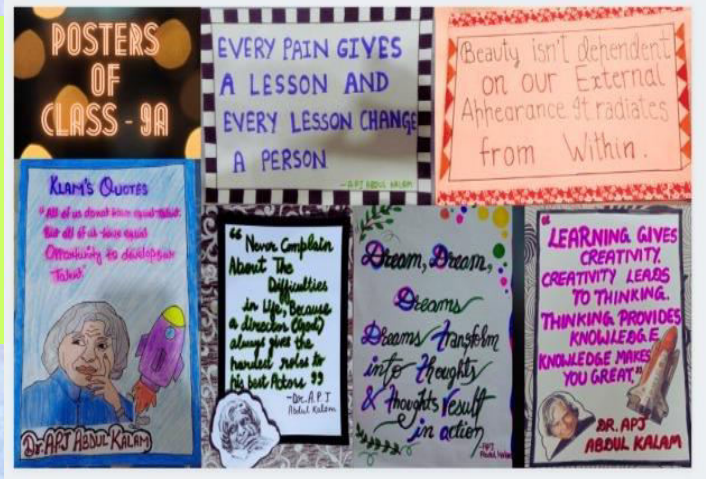 POSTERS
OF
CLASS - 9A
EVERY PAIN GIVES
A LESSON AND
EVERY LESSON CHANGE
A PERSON
-APJ ABDUL KALAM
Beauty isn't dependent
on our External
Appearance It radiates
from Within.
KLAM'S QUOTES
"All of us do not have equal talent.
But all of us have equal
Opportunity to develop our
Talent"
Dr. APJ ABDUL KALAM
"Never Complain
About The
Difficulties
in life, Because
a director (God)
always give the
hardest roles to
his best Actors"
-Dr. A.P.J
Abdul Kalam
Dream, Dream,
Dreams
Dreams transform
into thoughts
& thoughts result
in action
-APJ
Abdul Kalam
"LEARNING GIVES
CREATIVITY.
CREATIVITY LEADS
TO THINKING.
THINKING PROVIDES
KNOWLEDGE
KNOWLEDGE MAKES
YOU GREAT."
DR. APJ
ABDUL KALAM